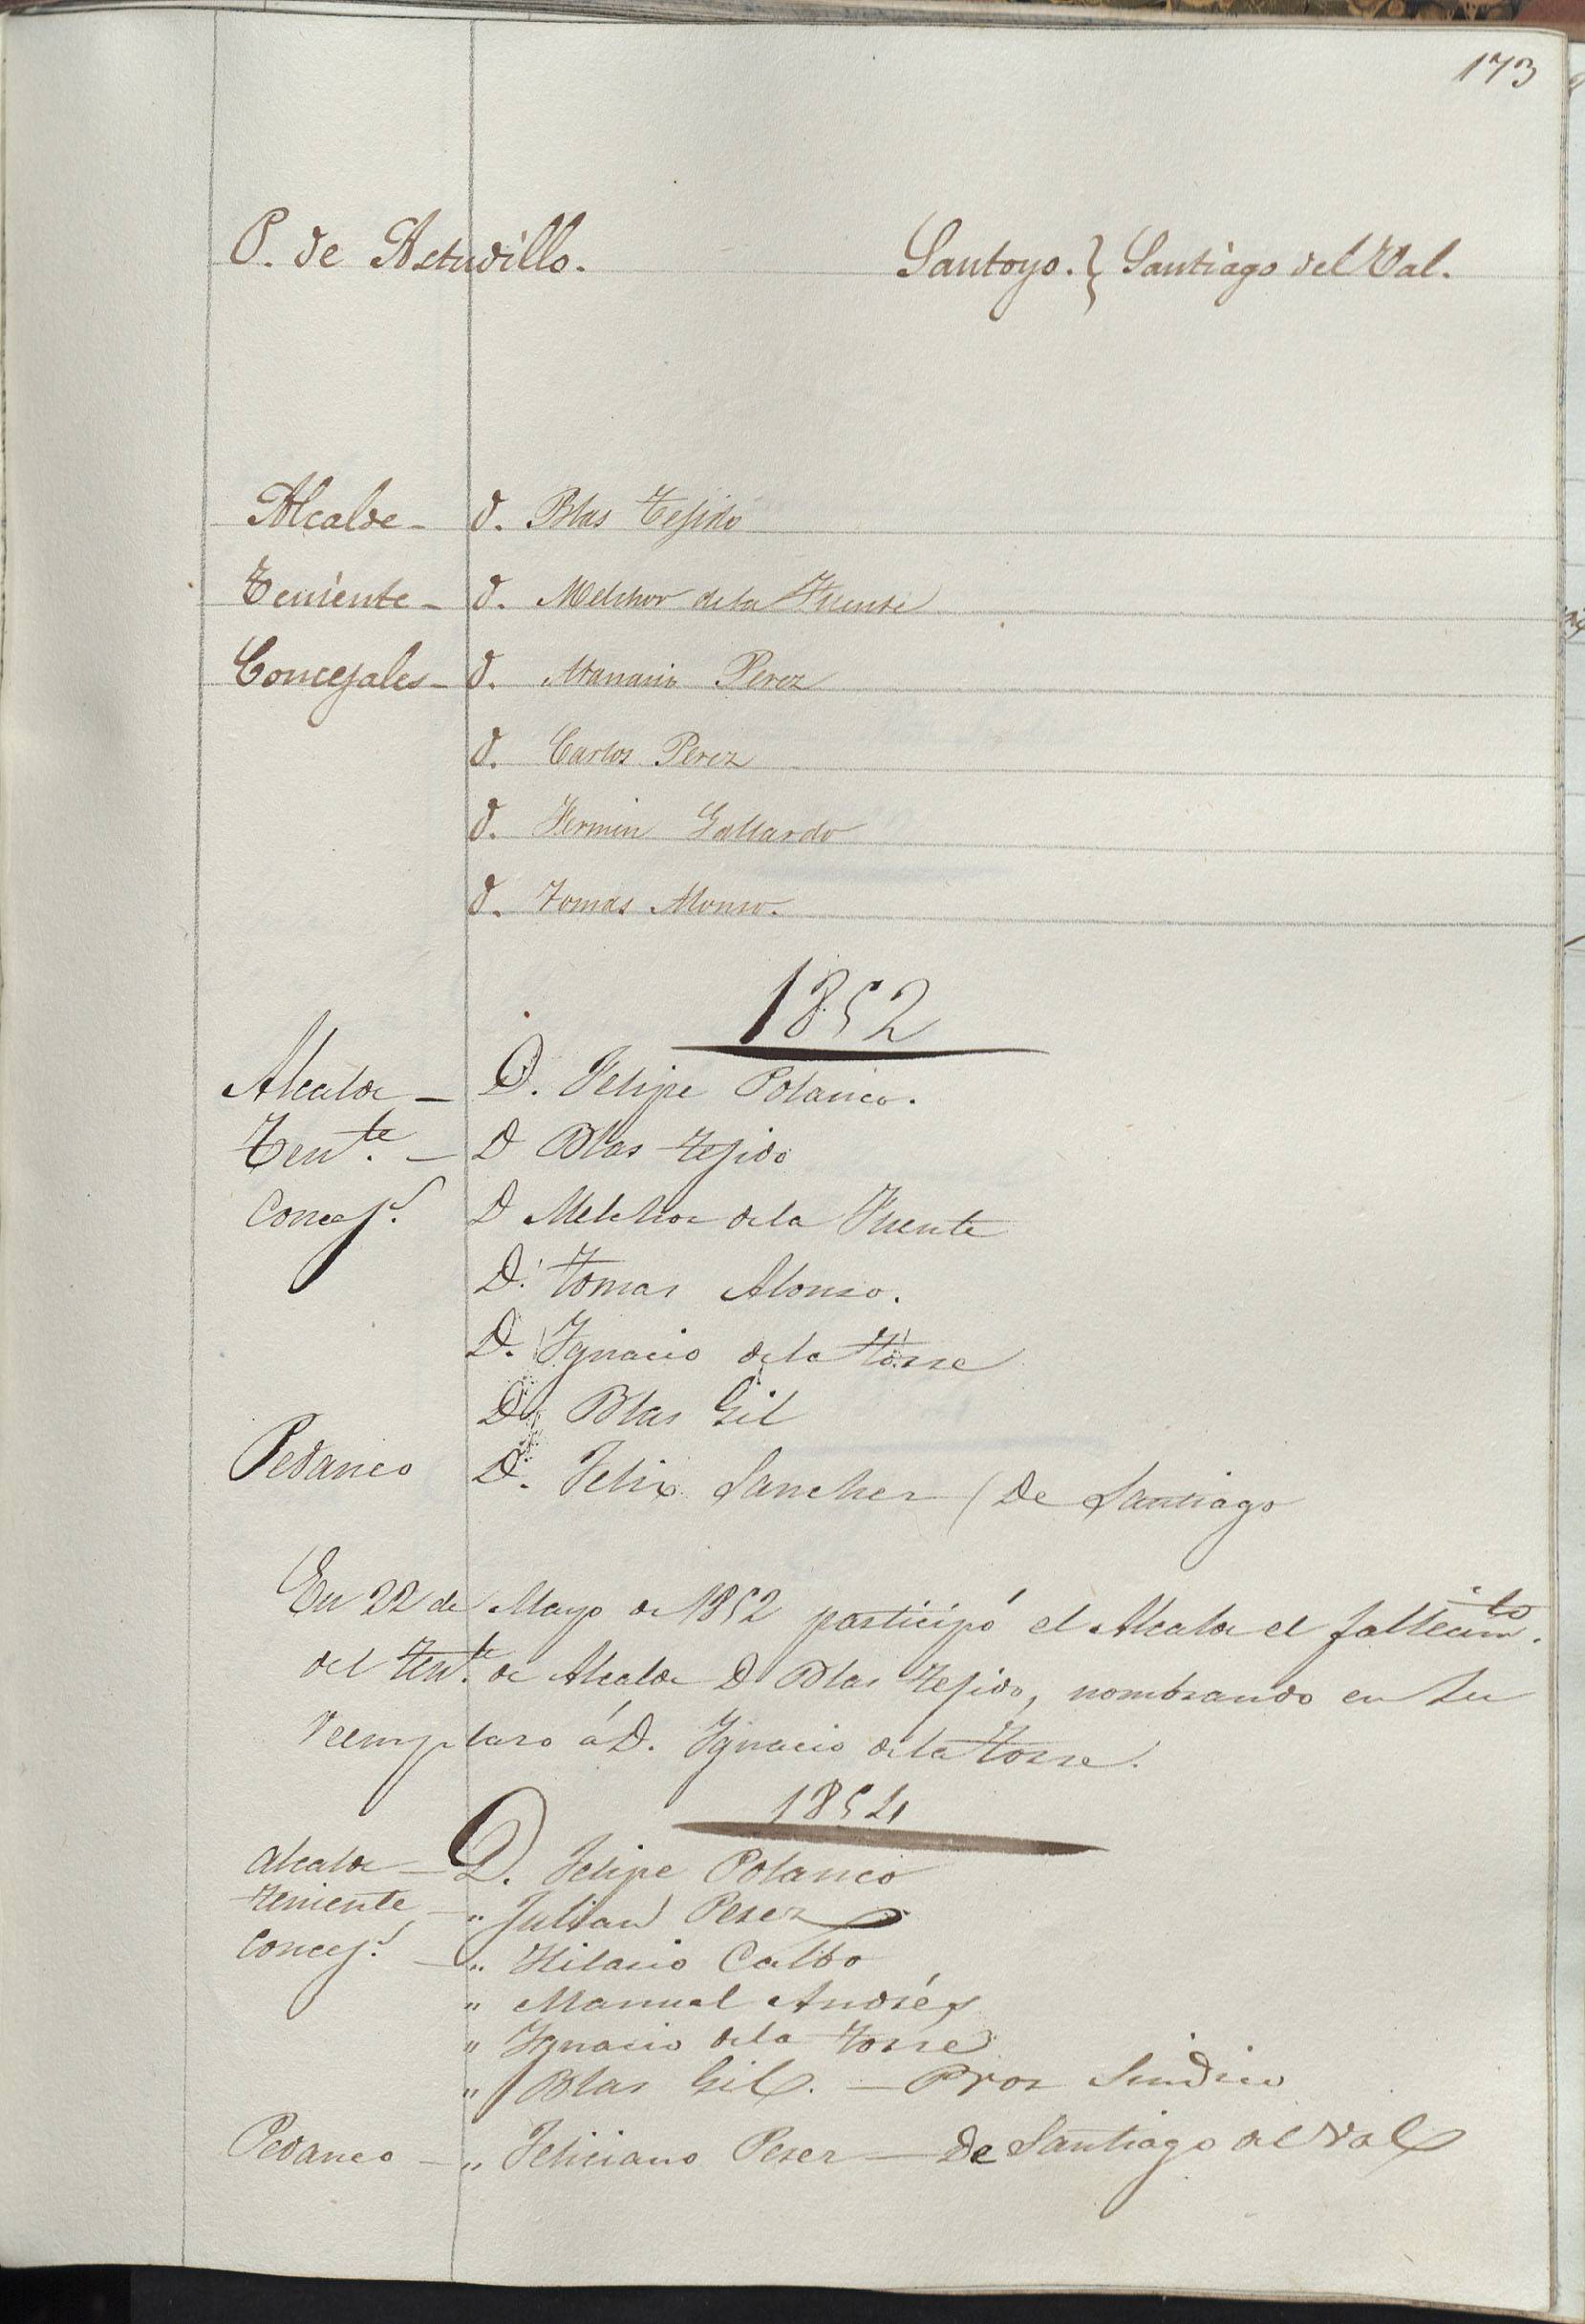 173
P. de Astudillo. Santoyo. } Santiago del Val.
Alcalde - D. Blas Tejido
Teniente - D. Melchor de la Fuente
Concejales - D. Atanasio Perez
D. Carlos Perez
D. Fermin Gallardo
D. Tomas Alonso.
1852
Alcalde - D. Felipe Polanco.
Tente. - D Blas Tejido
Concejs. D Melchor de la Fuente
D. Tomas Alonso.
D. Ygnacio de la Torre
D. Blas Gil
Pedaneo D. Felix Sanchez (De Santiago
En 22 de Mayo de 1852 participó el Alcalde el fallecimto.
del Tente. de Alcalde D Blas Tejido, nombrando en su
reemplazo á D. Ygnacio de la Torre.
1854
Alcalde - D. Felipe Polanco
Teniente - " Julian Perez
Concejs. - " Hilario Calbo
" Manuel Andrés
" Ygnacio de la Torre
" Blas Gil. - Pror Sindico
Pedaneo - " Feliciano Perez - De Santiago del Val